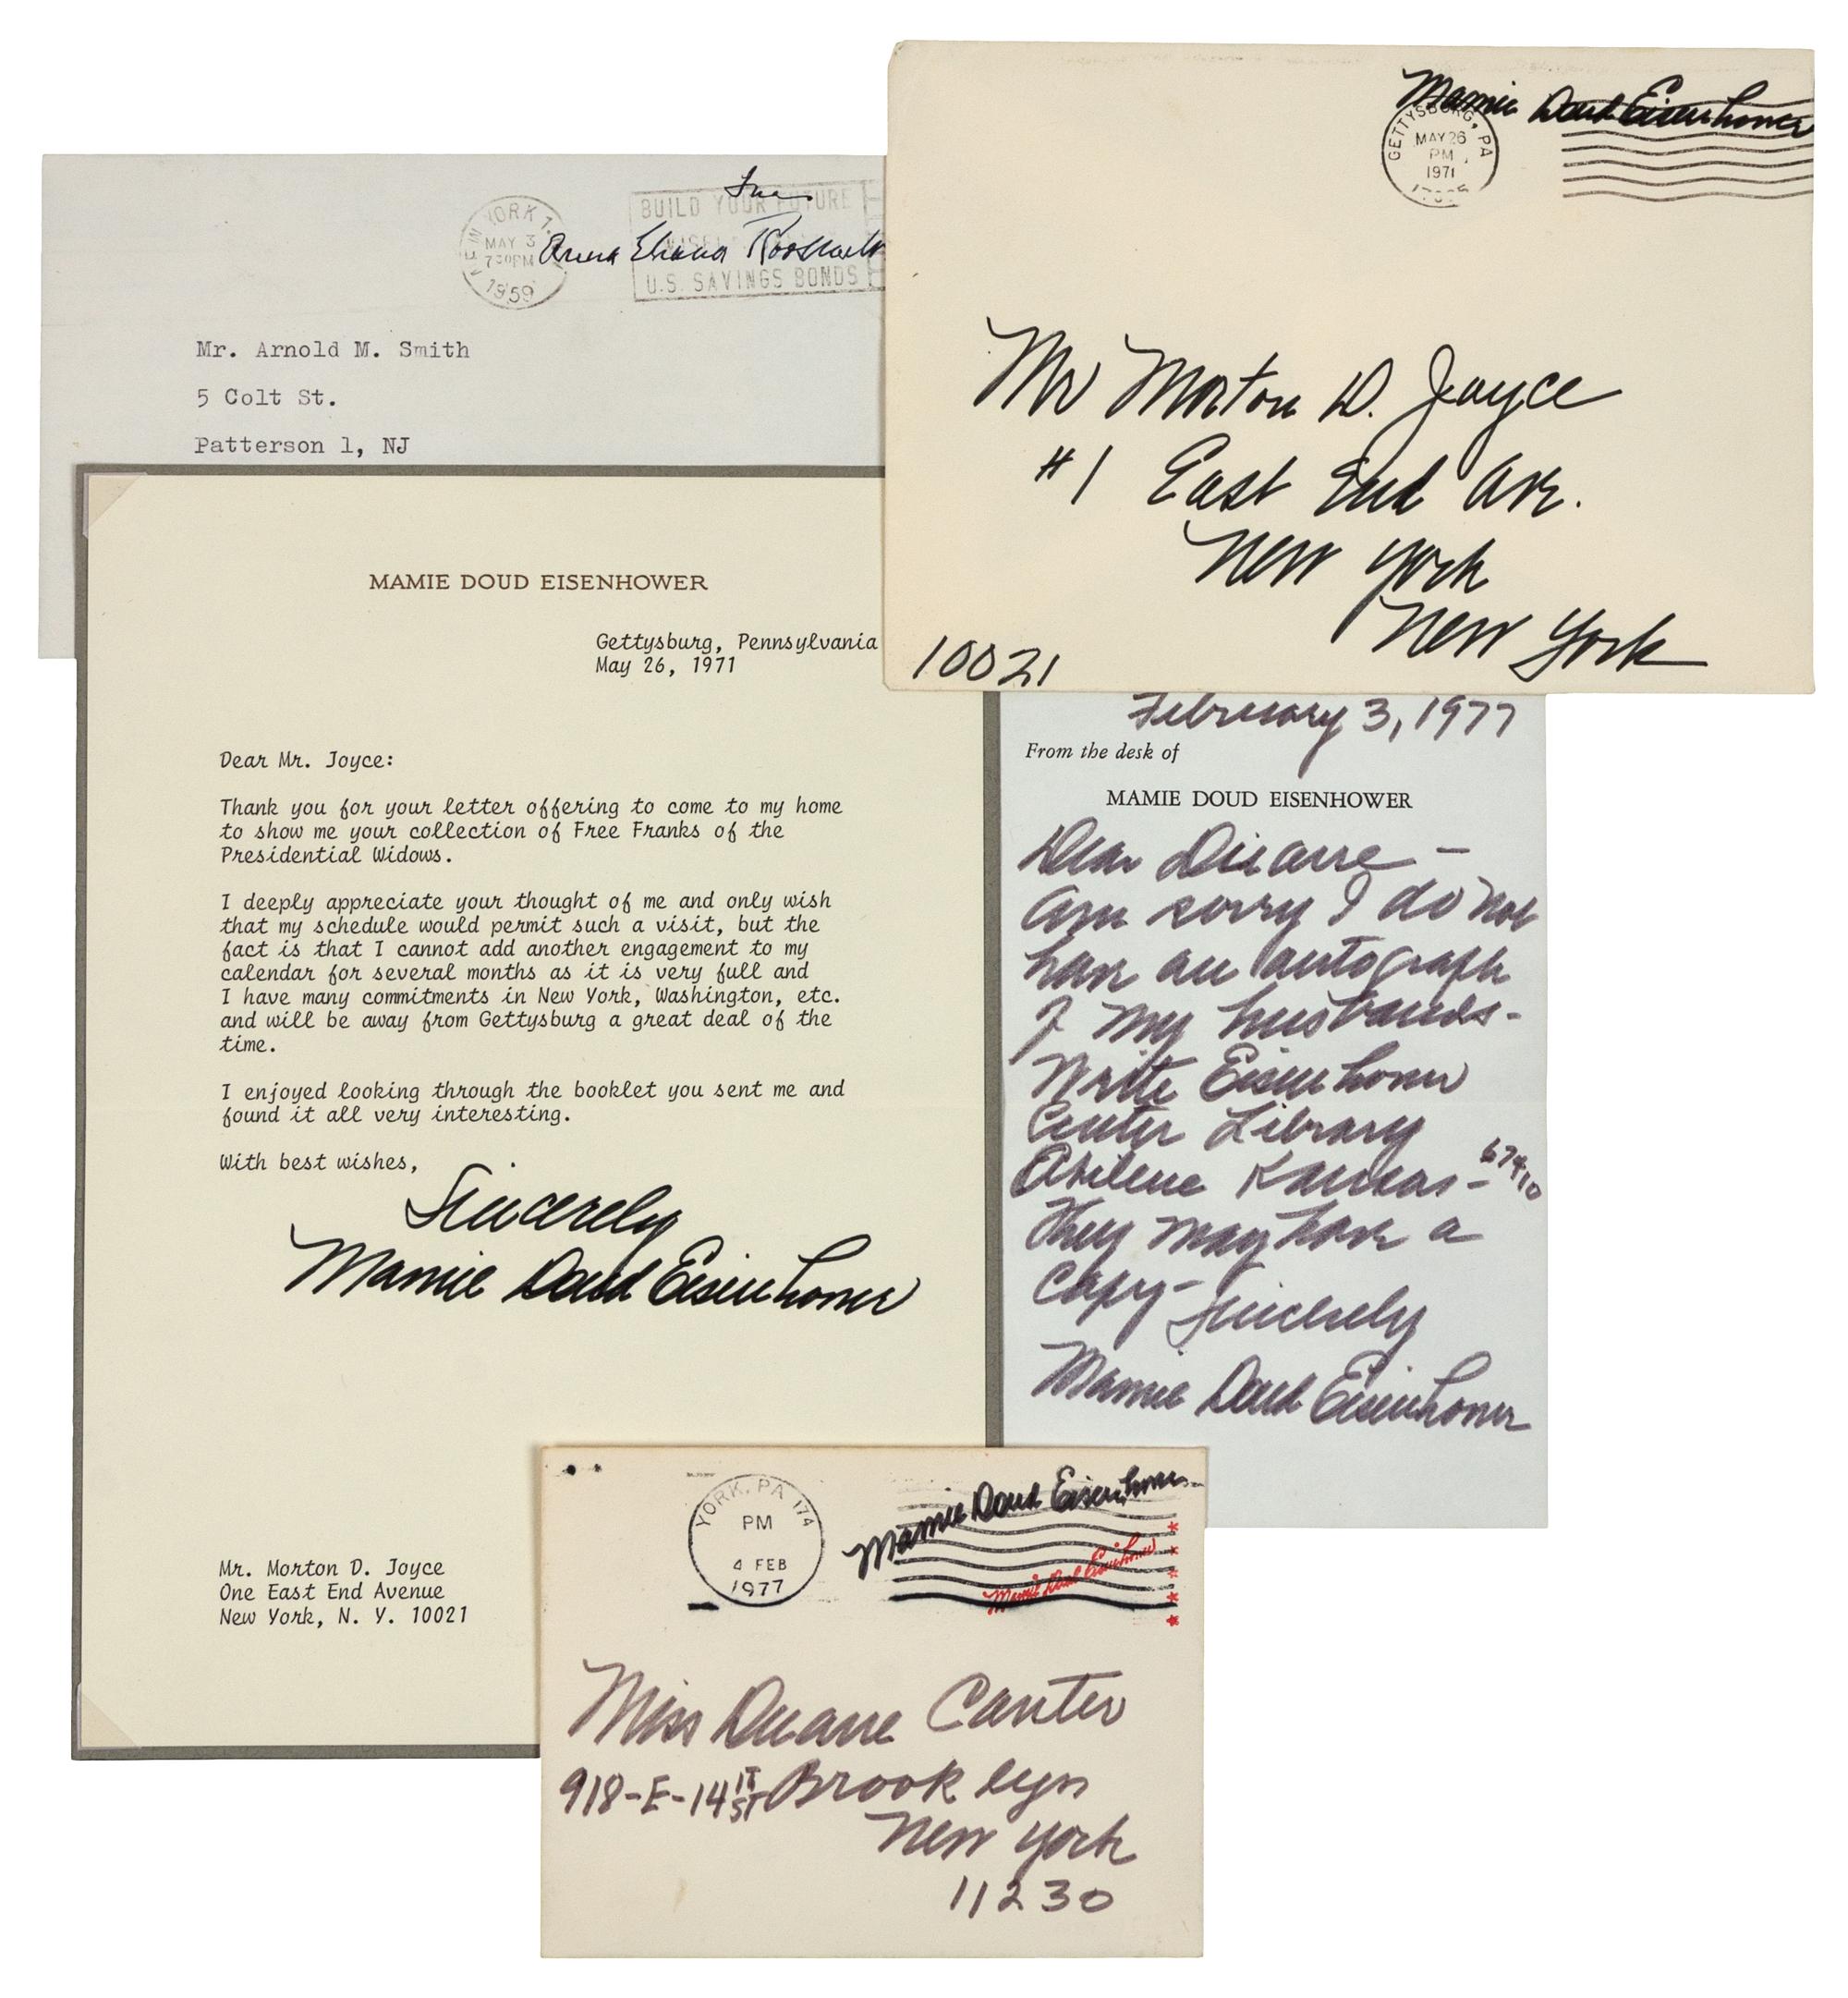 Free
NEW YORK 1,
MAY 3
7 30 PM
1959
BUILD YOUR FUTURE
U.S. SAVINGS BONDS
Anna Eleanor Roosevelt
Mr. Arnold M. Smith
5 Colt St.
Patterson 1, NJ
Mamie Doud Eisenhower
GETTYSBURG, PA
MAY 26
PM
1971
Mr Morton D. Joyce
#1 East End Ave.
New York
New York
10021
MAMIE DOUD EISENHOWER
Gettysburg, Pennsylvania
May 26, 1971
Dear Mr. Joyce:
Thank you for your letter offering to come to my home
to show me your collection of Free Franks of the
Presidential Widows.
I deeply appreciate your thought of me and only wish
that my schedule would permit such a visit, but the
fact is that I cannot add another engagement to my
calendar for several months as it is very full and
I have many commitments in New York, Washington, etc.
and will be away from Gettysburg a great deal of the
time.
I enjoyed looking through the booklet you sent me and
found it all very interesting.
With best wishes,
Sincerely
Mamie Doud Eisenhower
Mr. Morton D. Joyce
One East End Avenue
New York, N. Y. 10021
February 3, 1977
From the desk of
MAMIE DOUD EISENHOWER
Dear Duane –
Am sorry I do not
have an autograph
of my husbands-
Write Eisenhower
Center Library
Abilene Kansas - 67410
They may have a
copy-
Sincerely
Mamie Doud Eisenhower
YORK, PA 174
PM
4 FEB
1977
Mamie Doud Eisenhower
Mamie Doud Eisenhower
Miss Duane Canter
918-E-14 ST Brooklyn
New York
11230